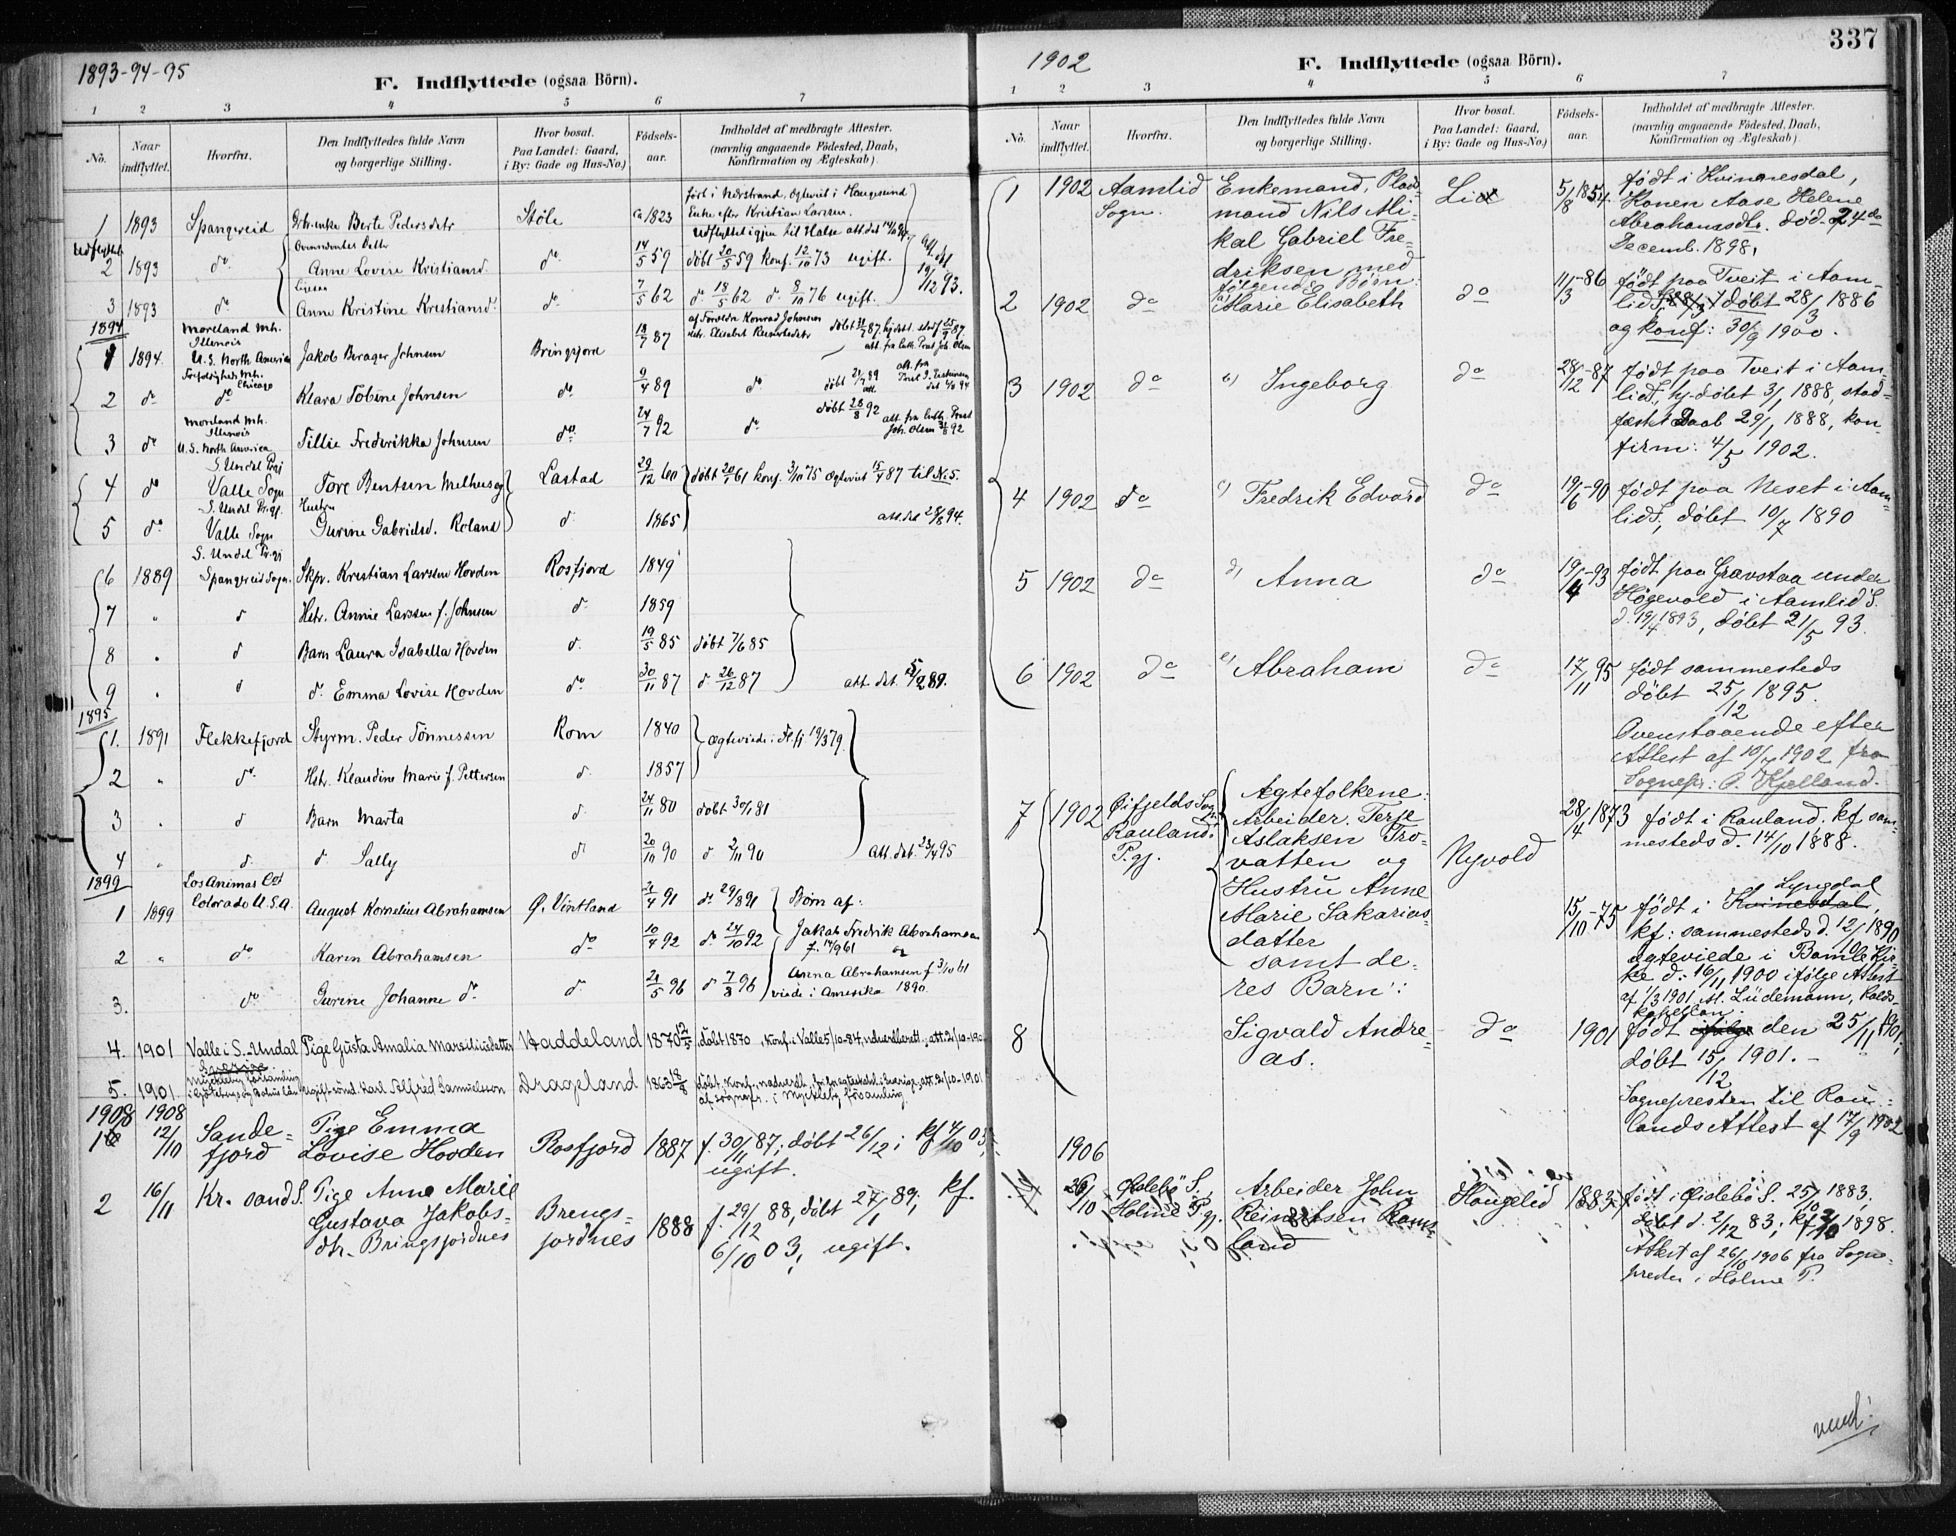 1893-94-95
F. Indflyttede (ogsaa Börn).
1 2 3 4 5 6 7
No. Naar indflyttet. Hvorfra. Den Indflyttedes fulde Navn og borgerlige Stilling. Hvor bosat. Paa Landet: Gaard, i By: Gade og Hus-No.) Födsels-aar. Indholdet af medbragte Attester. (navnlig angaaende Födested, Daab, Konfirmation og Ægteskab).
född i Nærstrand, ægteviet i Haugesund
Enke efter Kristian Larssen.
1 1893 Spangereid Berte Pedersdtr Støle ca 1823 Udflyttet igjen til Halse
Udflyttet
2 1893 do Anne Lovise Kristiansd. do 14/5 59 döbt 20/5 59 konf. 12/10 73 ugift.
3 1893 do Anne Kristine Kristiansd. do 7/5 62 d. 18/5 62 d. 8/10 76 ugift. 19/12 93.
1894
Moreland Mh.
Illinois
U.S. North America
1 1894. Jakob Berager Johnsen Bringsjord 18/7 87 af Foreldre Konrad Johnsen
Chicago
2 do do Klara Tobine Johnsen do 9/4 89 do
Moreland Mh.
Illinois
U.S. North America
3 do Tillie Frederikka Johnsen do 24/7 92 do döbt 28/8 92
S. Undal Prgj
4 do Valle Sogn Tore Bentsen Melhus og Lastad 29/12 60 döbt 20/1 61 konf. 3/10 75 ægteviet 15/4 87 til No 5.
S. Undal Prgj. Hustru
5 do Valle Sogn Gurine Gabrielsd. Roland d. 1865
S. Undal Prgj
6 1889 Spangereid Sogn. Skpr. Kristian Larssen Hovden Rosfjord 1849
7 " d Hstr. Annie Larssen f. Johnsen d. 1859
8 " d Barn Laura Isabella Hovden d. 19/5 85 döbt 7/6 85
9 " d d. Emma Lovise Hovden do 30/11 87 d 26/12 87 att. dat. 5/2 89.
1895
1. 1891 Flekkefjord Styrm. Peder Tönnessen Rom 1840 ægteviede i Fl.fj 19/3 79.
2 " do Hstr. Klaudine Marie f. Pettersen d. 1857
3 . d Barn Marta d. 24/11 80 döbt 30/1 81
4 " d. d Sally d 20/10 90 d 2/11 90 att. dat. 23/4 95
1899
Los Animas Cot
1 1899 Colorado U.S.A. August Kornelius Abrahamsen Ø. Vintland 2/4 91 d. 29/8 91 Børn af:
2 " do Karen Abrahamsen do 10/4 92 d. 24/10 92 Jakob Fredrik Abrahamsen f. 14/9 61 og
3. do Gurine Johanne do d. 29/5 96 d 7/8 96 Anna Abrahamsen f 3/10 61
viede i Amerika 1890.
4. 1901 Valle i S.-Undal Pige Gusta Amalia Haddeland 1870 döbt 1870, konf. i Valle 5/10-84, att. 2/10-1901
5. 1901 Karl Alfred Samuelsson Drageland 1863 18/9
1908 1908
1 12/10 Sandefjord Pige Emma Lovise Hovden Rosfjord 1887 f. 30/11 87; døbt 26/12; kf 4/10 03, ugift.
2 16/11 Kr. sand S. Pige Anne Marie Gustava Jakobs-
dtr. Bringsjordnes Brengs-
jordnes 1888 f. 29/12 88, døbt 27/1 89; kf.
6/10 03, ugift.
337
1902
F. Indflyttede (ogsaa Börn).
1 2 3 4 5 6 7
No. Naar indflyttet. Hvorfra. Den Indflyttedes fulde Navn og borgerlige Stilling. Hvor bosat. Paa Landet: Gaard, i By: Gade og Hus-No.) Födsels-aar. Indholdet af medbragte Attester. (navnlig angaaende Födested, Daab, Konfirmation og Ægteskab).
1 1902 Aamlid Sogn. Enkemand, Plads-
mand Nils Mi-
kal Gabriel Fre-
driksen med
følgende Børn: 5/8 1854. født i Kvinnesdal,
Konen Aase Helene
Abrahamsdtr. død. 24de
Decemb. 1898,
2 1902 do a) Marie Elisabeth do 11/3-86 født paa Tveit i Aam-
lid S. døbt 28/3 1886
og konf: 30/9 1900.
3 1902 do b) Ingeborg do 28/12-87 født paa Tveit i Aam-
lid S, hj-døbt 3/1 1888, stad-
fæstet Daab 29/1 1888, kon-
firm: 4/5 1902.
4 1902 do c) Fredrik Edvard do 19/6-90 født paa Neset i Aam-
lid S, døbt 10/7 1890
5 1902 do d) Anna do 19/4-93 født paa Gravstaa under
Høgevold i Aamlid S.
d. 19/4 1893, døbt 21/5 93.
6 1902 do e) Abraham do 17/11 95 født sammesteds
døbt 25/12 1895.
Ovenstaaende efter
Attest af 10/4 1902 fra
Sognepr: O. Kjelland.
7 1902 Øifjelds Sogn Rauland P.gj. Ægtefolkene:
Arbeider. Terje
Aslaksen Tro-
vatten og
Hustru Anne
Marie Sakarias
datter
samt de-
res Barn: Nyvold 28/4 1873 født i Rauland. kf sam-
mesteds d. 14/10 1888.
15/10-75 født i Kvinesdal Lyngdal,
kf: sammesteds d. 12/10 1890
ægteviede i Bamle Kir-
ke d. 16/11 1900 ifølge Attest
af 1/3 1901 M. Lüdemann,
8 Sigvald Andre-
as. do 1901 født den 25/11 1901,
døbt 15/12 1901. -
Sognepresten til Rau-
lands Attest af 17/9 1902
1906
26/10 Øislebö S. Holme P.gj. Arbeider John
Reinertsen Roms
land Haugelid 1883 født i Øislebö S. 25/10 1883,
döbt d. 2/12 83; kf 1898.
Attest af 26/10 1906 fra Sogne-
presten i Holme P.
vend!